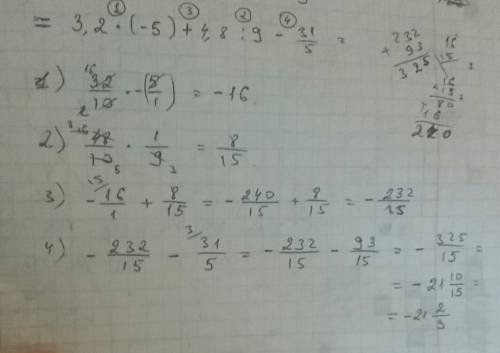 = 3,2 · (-5) + 4,8 : 9 - 31/5 =
1) 32/10 · -(5/1) = -16
2) 48/10 · 1/9 = 8/15
3) -16/1 + 8/15 = -240/15 + 8/15 = -232/15
4) -232/15 - 31/5 = -232/15 - 93/15 = -325/15 =
= -21 10/15 =
= -21 2/3
+ 232
93
325
16
15
80
16
240